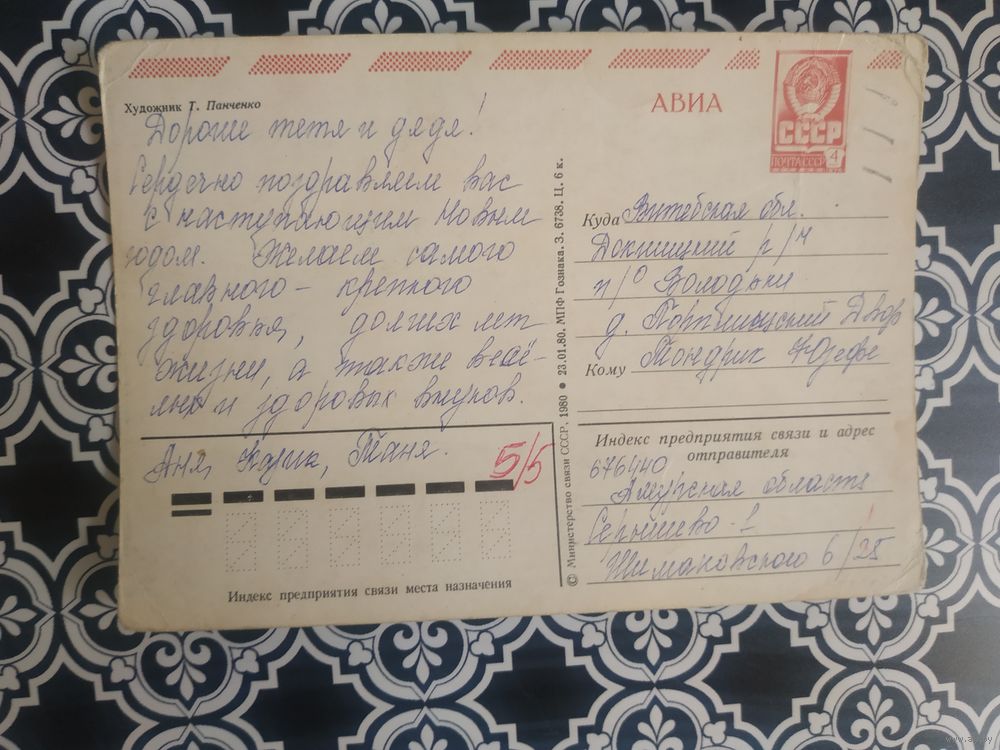 Художник Т. Панченко
АВИА
СССР
ПОЧТА СССР 4
Дорогие тетя и дядя!
Сердечно поздравляем вас
с наступающим Новым
годом. Желаем самого
главного – крепкого
здоровья, долгих лет
жизни, а также весё-
лых и здоровых внуков.
Аня, Коля, Таня.
5/5
Индекс предприятия связи места назначения
© Министерство связи СССР, 1980 ● 23.01.80. МПФ Гознака. З. 6738. Ц. 6 к.
Куда Витебская обл.
Докшицкий р/н
п/о Володьки
д. Двор
Кому Тондрик Юзефе
Индекс предприятия связи и адрес
отправителя
676440
Амурская область
Серышево-2
Шимановского 6/25